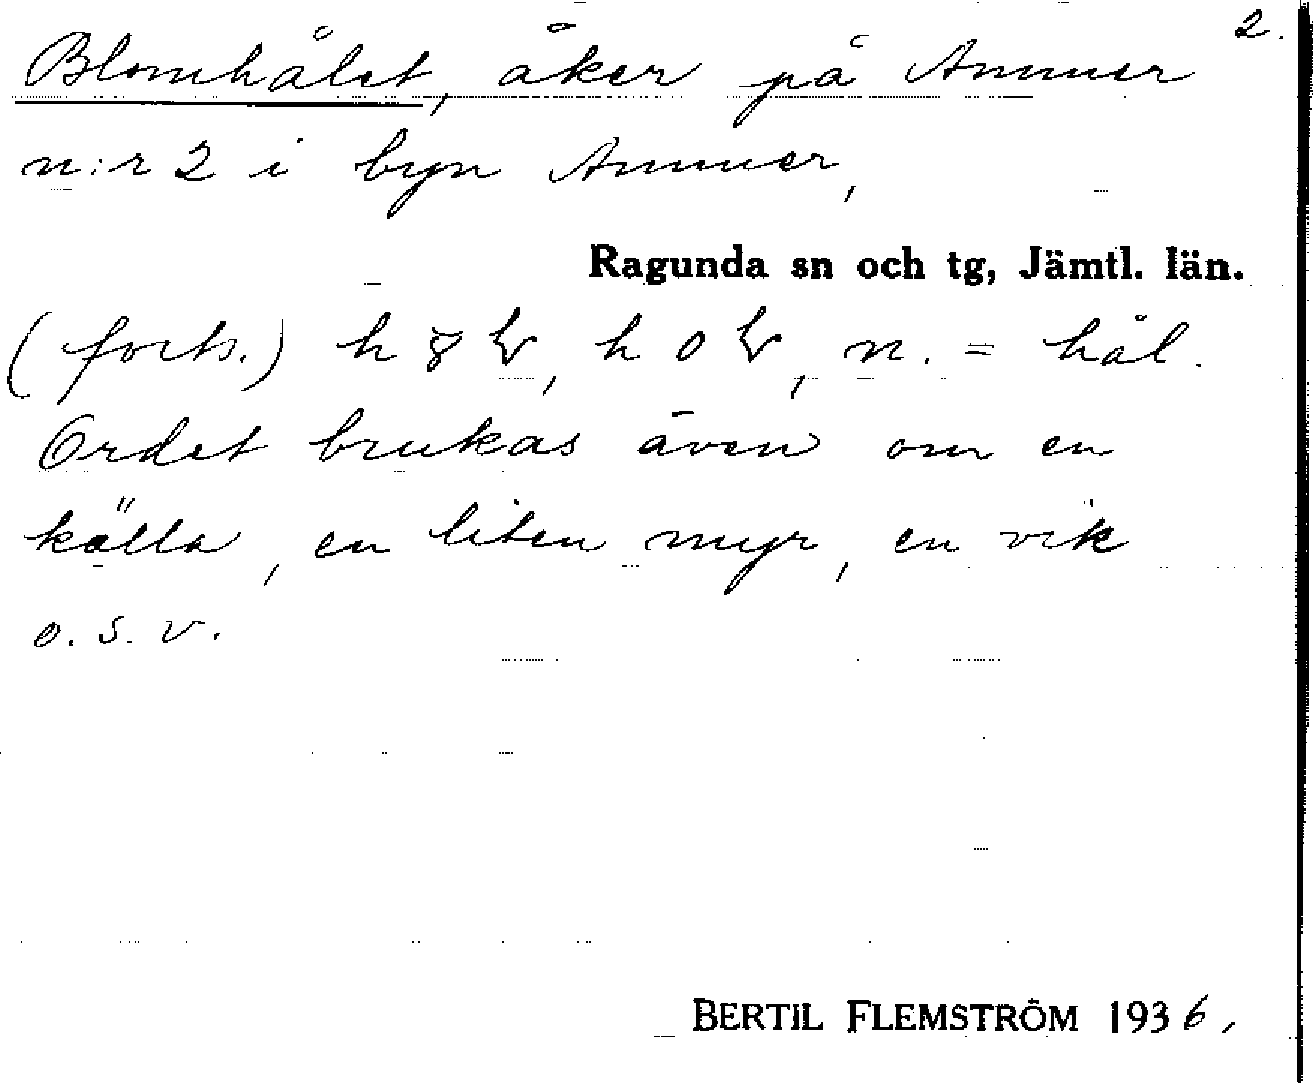 2.
Blomhålet, åker på Ammer
n:r 2 i byn Ammer,
Ragunda sn och tg, Jämtl. län.
(forts.) h, h, n. = hål.
Ordet brukas även om en
källa, en liten myr, en vik
o. s. v.
BERTIL FLEMSTRÖM 1936,